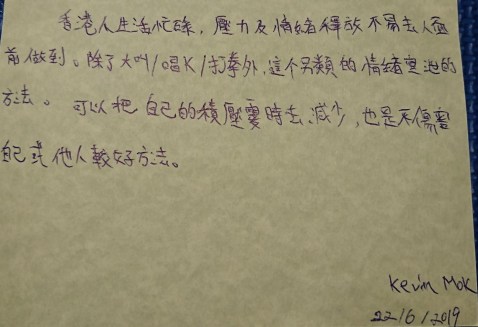 香港人生活忙碌，壓力及情緒釋放不易去人面
前做到。除了大叫/唱K/打拳外，這个另類的情緒宣洩的
方法。可以把自己的積壓霎時去減少，也是不傷害
自己或他人較好方法。
Kevin Mok
22/6/2019